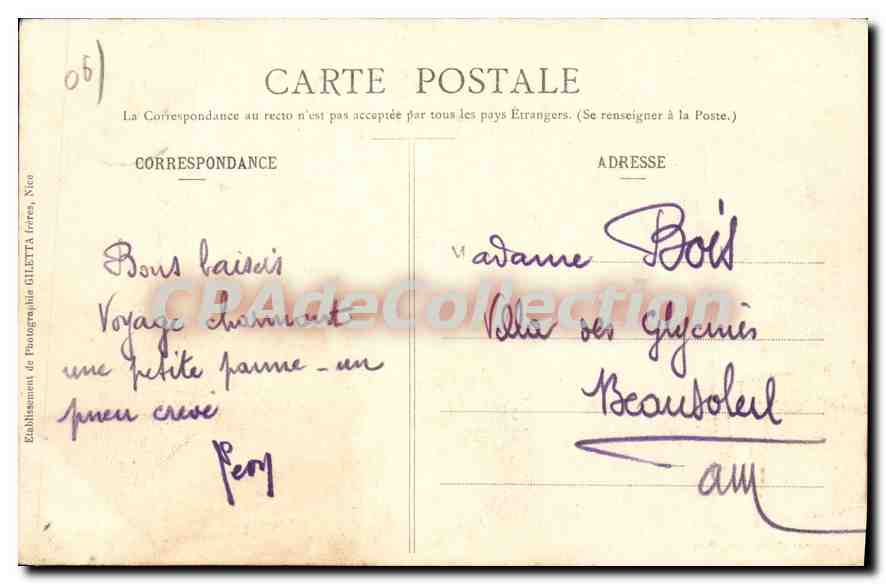 06)
CARTE POSTALE
La Correspondance au recto n'est pas acceptée par tous les pays Étrangers. (Se renseigner à la Poste.)
CORRESPONDANCE
Bons baisers
Voyage charmant
une petite panne - un
pneu crevé
ADRESSE
Madame Bois
Villa des Glycines
Beausoleil
AM
Etablissement de Photographie GILETTA frères, Nice
CPAdeCollection